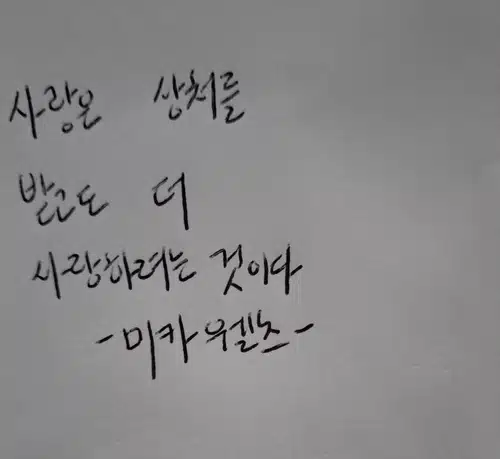 사랑은 상처를
받고도 더
사랑하려는 것이다
-미카 웰스-